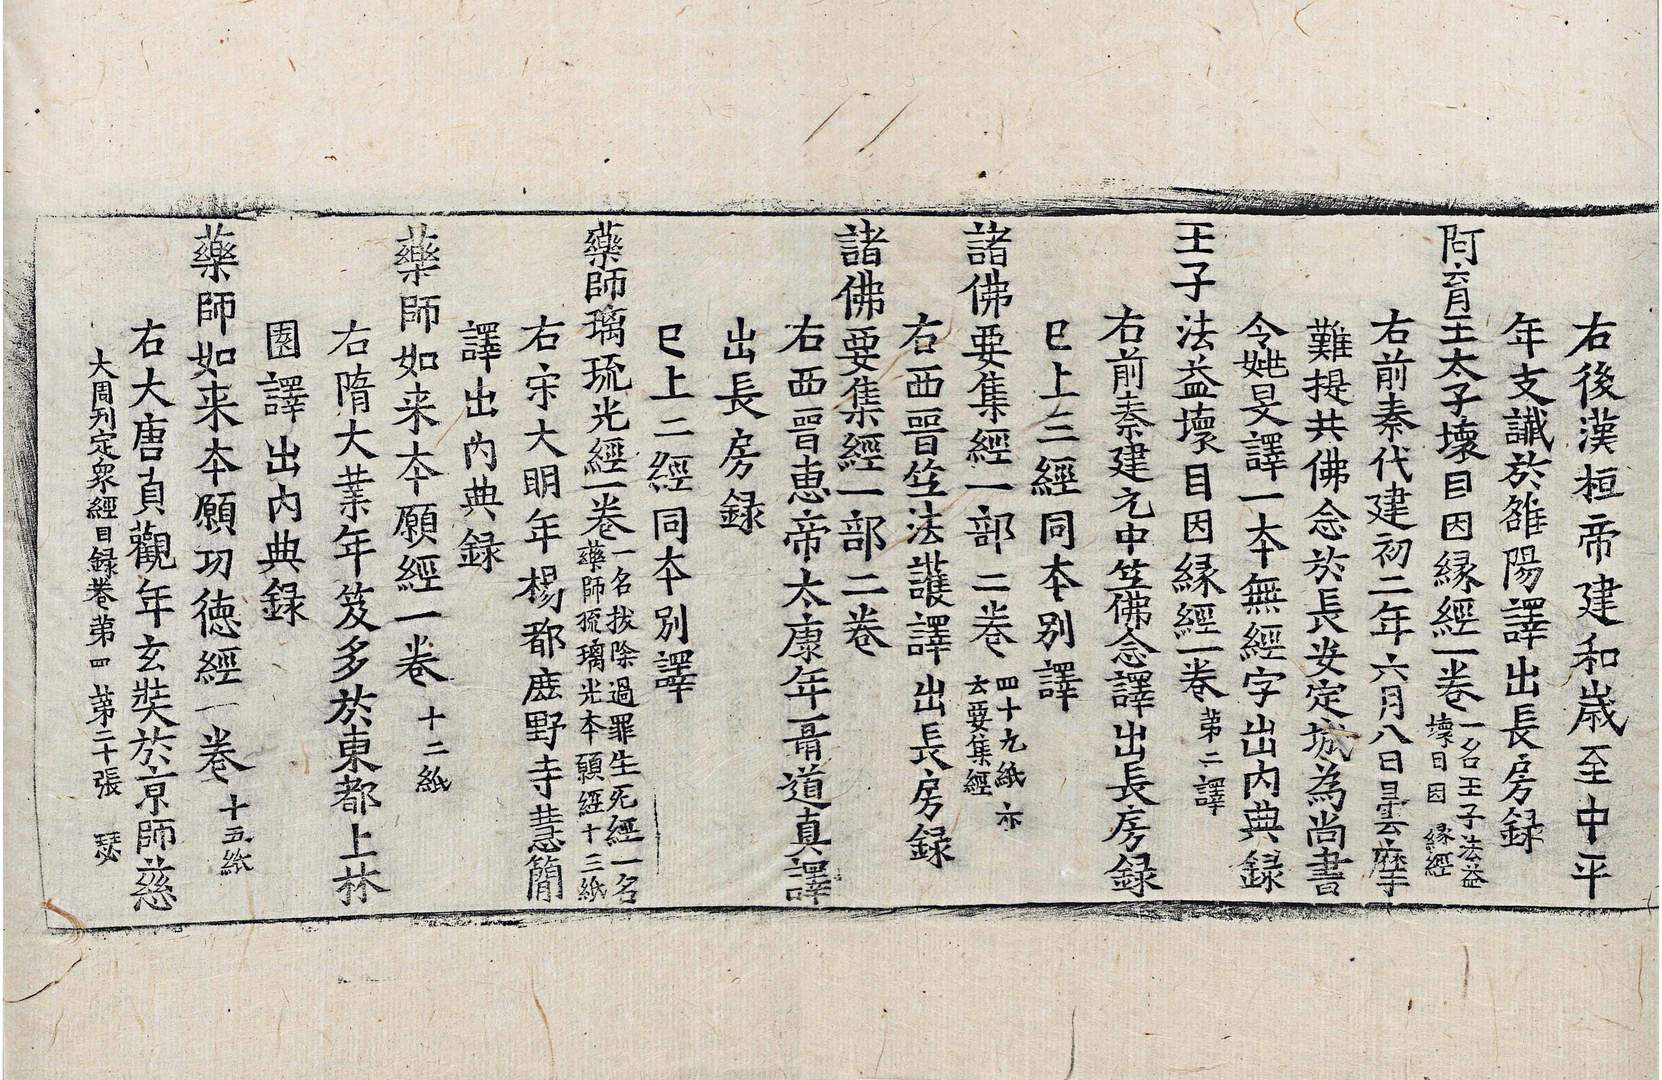 右後漢桓帝建和歳至中平
年支讖於雒陽譯出長房録
阿育王太子壞目因縁經一卷一名王子法益壞目因縁經
右前秦代建初二年六月八日曇摩
難提共佛念於長安定城為尚書
令姚旻譯一本無經字出内典録
王子法益壞目因縁經一卷第二譯
右前秦建元中竺佛念譯出長房録
已上二經同本別譯
諸佛要集經一部二卷四十九紙亦云要集經
右西晉竺法護譯出長房録
諸佛要集經一部二卷
右西晉恵帝太康年聶道真譯
出長房録
已上二經同本別譯
藥師璃琉光經一卷一名拔除過罪生死經一名藥師琉璃光本願經十三紙
右宋大明年楊都鹿野寺慧簡
譯出內典録
藥師如来本願經一卷十二紙
右隋大業年笈多於東都上林
園譯出内典録
藥師如来本願功徳經一卷十五紙
右大唐貞觀年玄奘於京師慈
大周刊定衆經目録卷第四 第二十張 瑟